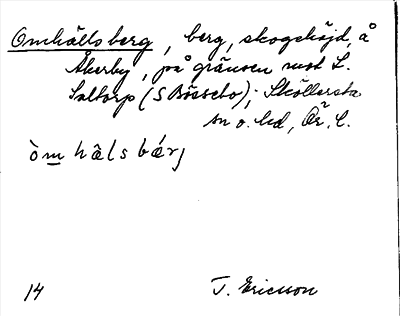 Omhälls berg, berg, skogshöjd, å
Åkerby, på gränsen mot L.
Saltorp (S Bössebo); Sköllersta
sn o. hd, Ör. l.
òm hâls bárj
14 T. Ericsson